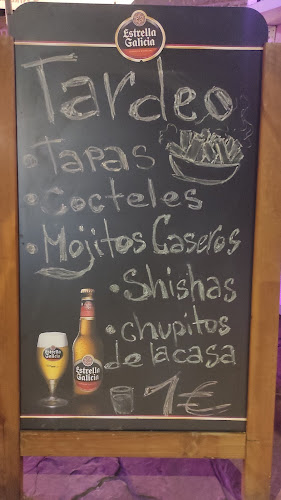 Estrella
Galicia
Tardeo
• Tapas
• Cocteles
• Mojitos Caseros
• Shishas
• chupitos
de la casa
1€
Estrella
Galicia
Estrella
Galicia